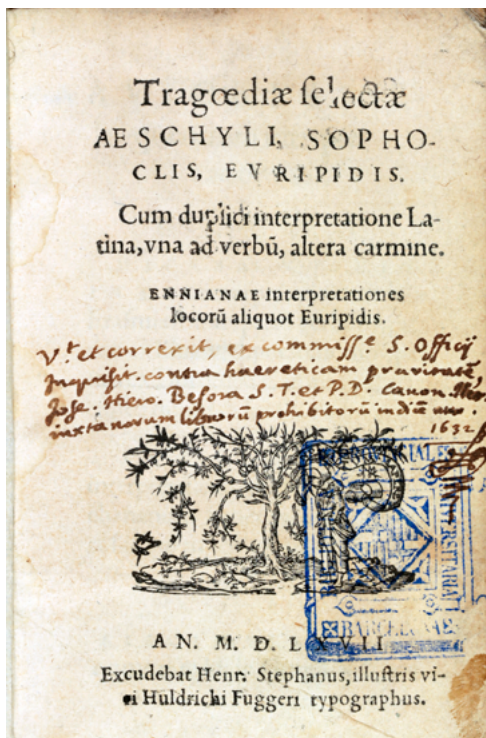 Tragœdiæ ſelectæ
AESCHYLI, SOPHO-
CLIS, EVRIPIDIS.
Cum duplici interpretatione La-
tina, vna ad verbū, altera carmine.
ENNIANAE interpretationes
locorū aliquot Euripidis.
V.t et correxit, ex commiss.e S. Officij
Inquisit. contra haereticam pravitatē,
Jose. Hiero. Besora S. T. et P. D. Canon. Iler.
iuxta novum librorū prohibitorū indicē
1632
PROVINCIALES
VNIVERSITARIA ET
BARCELONAE
AN. M. D. LXVII
Excudebat Henr. Stephanus, illuſtris vi-
ri Huldrichi Fuggeri typographus.